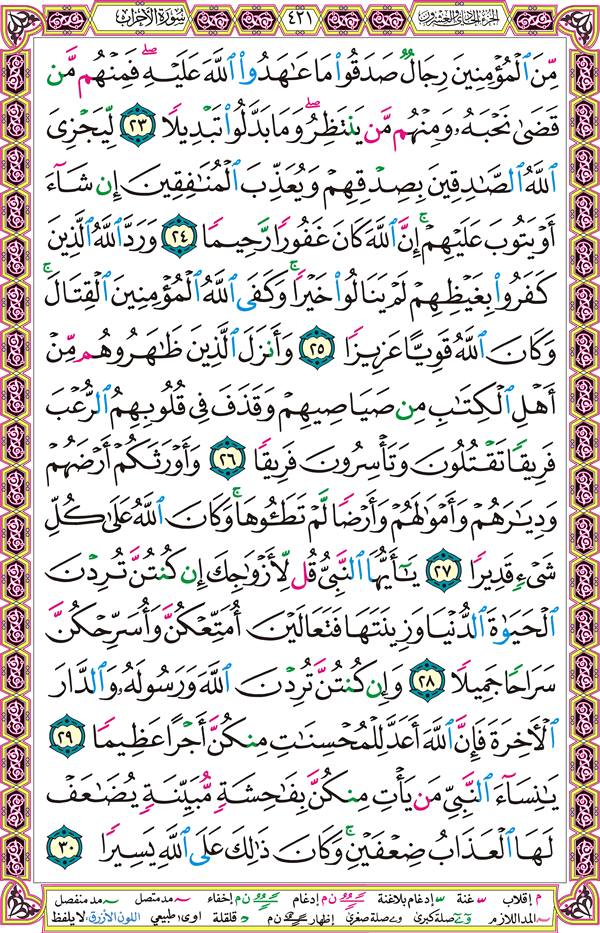 سورة الأحزاب ٤٢١ الجزء الحادي والعشرون
مِّنَ ٱلْمُؤْمِنِينَ رِجَالٌ صَدَقُوا۟ مَا عَـٰهَدُوا۟ ٱللَّهَ عَلَيْهِ ۖ فَمِنْهُم مَّن
قَضَىٰ نَحْبَهُۥ وَمِنْهُم مَّن يَنتَظِرُ ۖ وَمَا بَدَّلُوا۟ تَبْدِيلًا ٢٣ لِّيَجْزِىَ
ٱللَّهُ ٱلصَّـٰدِقِينَ بِصِدْقِهِمْ وَيُعَذِّبَ ٱلْمُنَـٰفِقِينَ إِن شَآءَ
أَوْ يَتُوبَ عَلَيْهِمْ ۚ إِنَّ ٱللَّهَ كَانَ غَفُورًا رَّحِيمًا ٢٤ وَرَدَّ ٱللَّهُ ٱلَّذِينَ
كَفَرُوا۟ بِغَيْظِهِمْ لَمْ يَنَالُوا۟ خَيْرًا ۚ وَكَفَى ٱللَّهُ ٱلْمُؤْمِنِينَ ٱلْقِتَالَ ۚ
وَكَانَ ٱللَّهُ قَوِيًّا عَزِيزًا ٢٥ وَأَنزَلَ ٱلَّذِينَ ظَـٰهَرُوهُم مِّنْ
أَهْلِ ٱلْكِتَـٰبِ مِن صَيَاصِيهِمْ وَقَذَفَ فِى قُلُوبِهِمُ ٱلرُّعْبَ
فَرِيقًا تَقْتُلُونَ وَتَأْسِرُونَ فَرِيقًا ٢٦ وَأَوْرَثَكُمْ أَرْضَهُمْ
وَدِيَـٰرَهُمْ وَأَمْوَٰلَهُمْ وَأَرْضًا لَّمْ تَطَـُٔوهَا ۚ وَكَانَ ٱللَّهُ عَلَىٰ كُلِّ
شَىْءٍ قَدِيرًا ٢٧ يَـٰٓأَيُّهَا ٱلنَّبِىُّ قُل لِّأَزْوَٰجِكَ إِن كُنتُنَّ تُرِدْنَ
ٱلْحَيَوٰةَ ٱلدُّنْيَا وَزِينَتَهَا فَتَعَالَيْنَ أُمَتِّعْكُنَّ وَأُسَرِّحْكُنَّ
سَرَاحًا جَمِيلًا ٢٨ وَإِن كُنتُنَّ تُرِدْنَ ٱللَّهَ وَرَسُولَهُۥ وَٱلدَّارَ
ٱلْـَٔاخِرَةَ فَإِنَّ ٱللَّهَ أَعَدَّ لِلْمُحْسِنَـٰتِ مِنكُنَّ أَجْرًا عَظِيمًا ٢٩
يَـٰنِسَآءَ ٱلنَّبِىِّ مَن يَأْتِ مِنكُنَّ بِفَـٰحِشَةٍ مُّبَيِّنَةٍ يُضَـٰعَفْ
لَهَا ٱلْعَذَابُ ضِعْفَيْنِ ۚ وَكَانَ ذَٰلِكَ عَلَى ٱللَّهِ يَسِيرًا ٣٠
م إقلاب غنة إدغام بلاغنة ن م إدغام إخفاء مد متصل مد منفصل
المد اللازم صلة كبرى صلة صغرى إظهار ن م قلقلة اوى: طبيعي اللون الأزرق: لا يلفظ